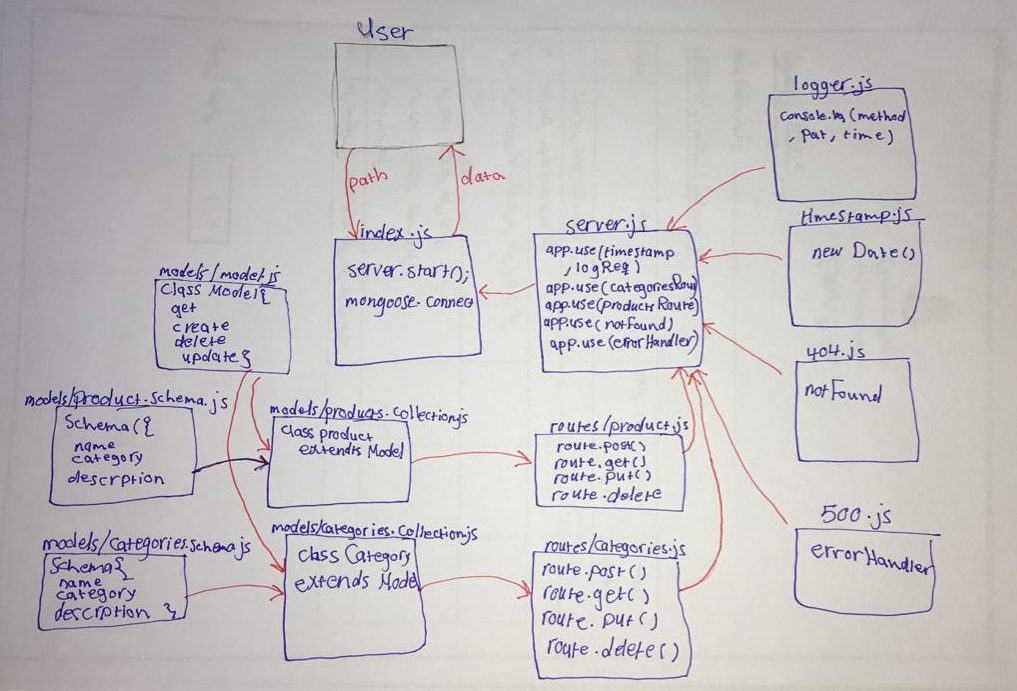 User
path
data
index.js
server.start();
mongoose.connect
server.js
app.use(timestamp
, logReq)
app.use(categoriesRout
app.use(productsRoute)
app.use(notFound)
app.use(errorHandler)
logger.js
console.log(method
, pat, time)
timestamp.js
new Date()
404.js
notFound
500.js
errorHandler
models/model.js
class Model{
get
create
delete
update}
models/product.schema.js
Schema({
name
category
descrption
models/products.collectionjs
class product
extends Model
routes/product.js
route.post()
route.get()
route.put()
route.delete
models/categories.schemajs
Schema{
name
category
descrption }
models/categories.collectionjs
class Category
extends Model
routes/categories.js
route.post()
route.get()
route.put()
route.delete()